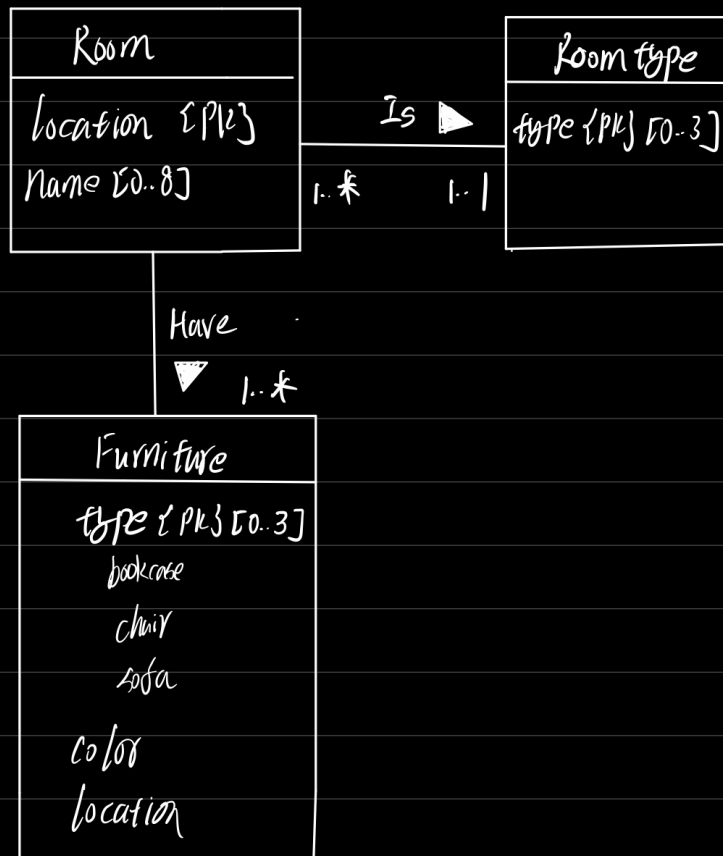 Room
location {PK}
name [0..8]
Is
1..*
1..1
Room type
type {PK} [0..3]
Have
1..*
Furniture
type {PK} [0..3]
bookcase
chair
sofa
color
location